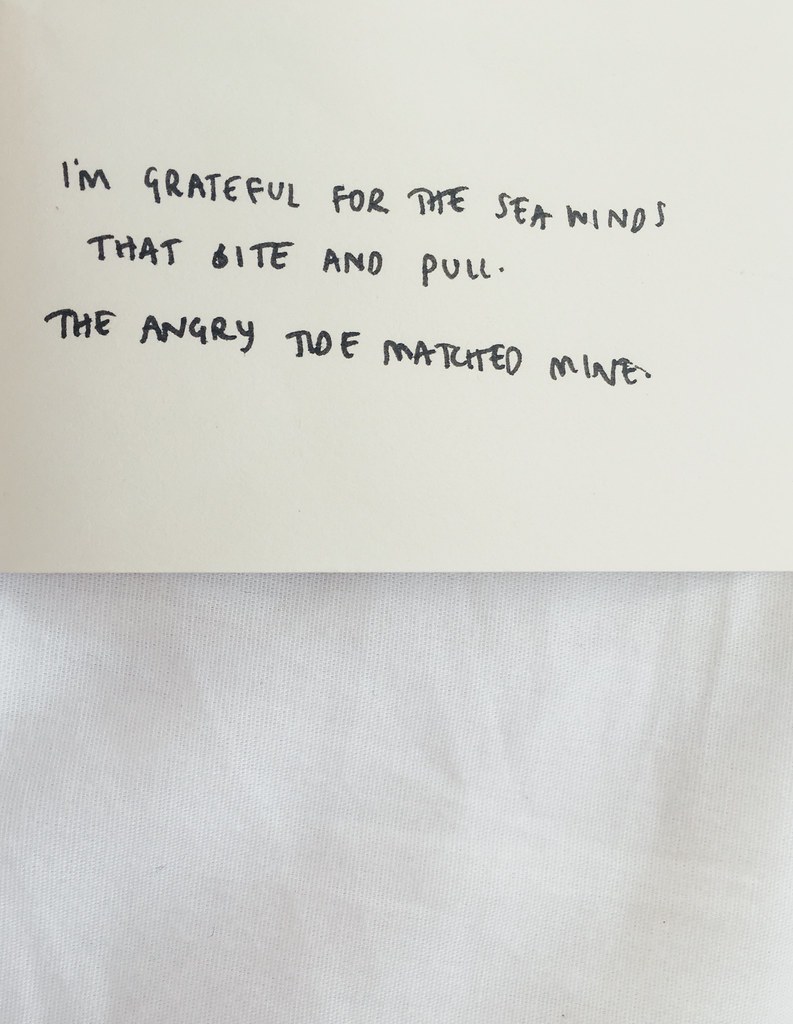 I'M GRATEFUL FOR THE SEA WINDS
THAT BITE AND PULL.
THE ANGRY TIDE MATCHED MINE.